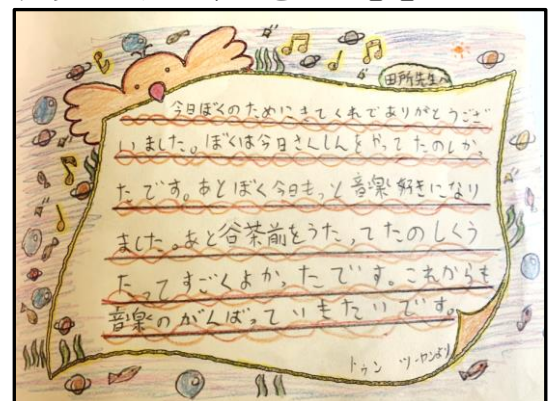 田所先生へ
今日ぼくのためにきてくれでありがとうござ
いました。ぼくは今日さんしんをやってたのしか
たです。あとぼく今日もっと音楽好きになり
ました。あと谷茶前をうたってたのしくう
たってすごくよかったです。これからも
音楽のがんばっていきたいです。
トゥン ツーヤンより